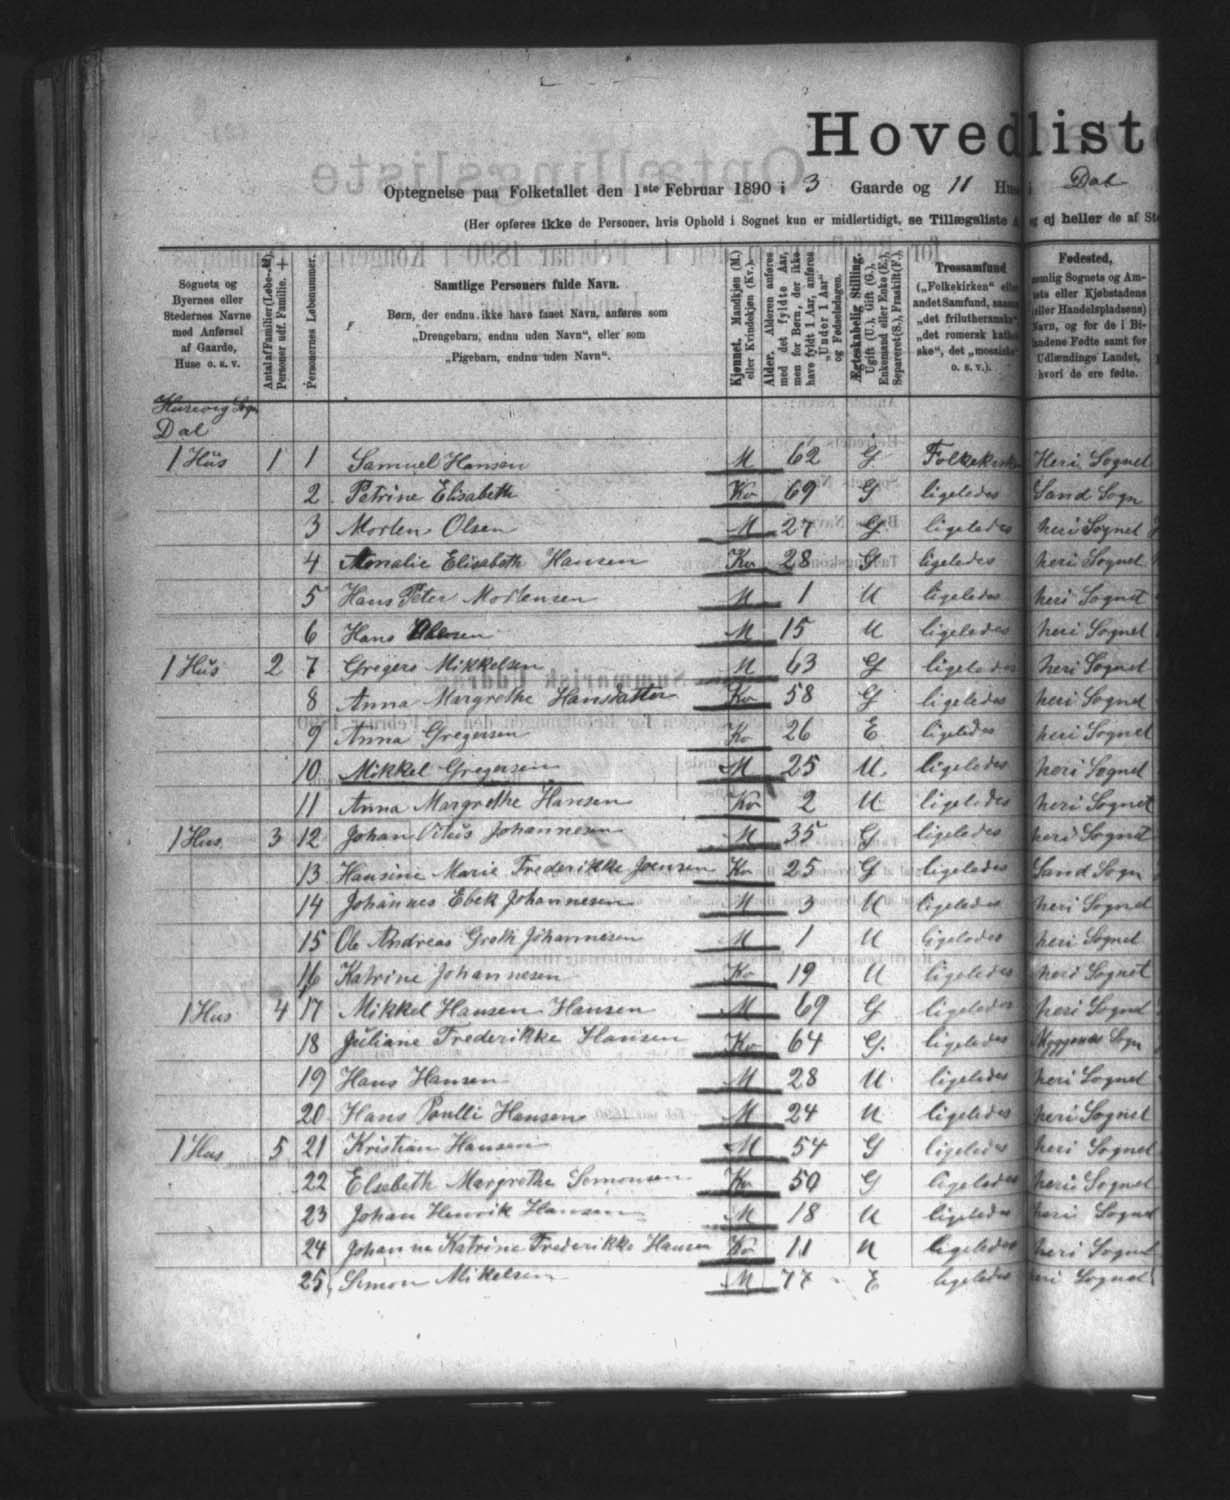 Hovedliste
Optegnelse paa Folketallet den 1ste Februar 1890 i 3 Gaarde og 11 Huse i Dal
(Her opføres ikke de Personer, hvis Ophold i Sognet kun er midlertidigt, se Tillægsliste og ej heller de af
Sognets og Byernes eller Stedernes Navne med Anførsel af Gaarde, Huse o. s. v.
Antal af Familier (Løbe-№). Personer udf. Familie. +
Personernes Løbenummer.
Samtlige Personers fulde Navn.
Børn, der endnu ikke have faaet Navn, anføres som
„Drengebarn, endnu uden Navn“, eller som
„Pigebarn, endnu uden Navn“.
Kjønnet. Mandkjøn (M.) eller Kvindekjøn (Kv.).
Alder. Alderen anføres med det fyldte Aar, men for Børn, der ikke have fyldt 1 Aar, anføres „Under 1 Aar“ og Fødselsdagen.
Ægteskabelig Stilling. Ugift (U.), Gift (G.), Enkemand eller Enke (E.), Separeret (S.), Fraskilt (F.).
Trossamfund („Folkekirken“ eller andet Samfund, saasom „det frilutheranske“, „det romersk katholske“, det „mosaiske“ o. s. v.).
Fødested, nemlig Sognets og Amtets eller Kjøbstadens (eller Handelspladsens) Navn, og for de i Bilandene Fødte samt for Udlændinge Landet, hvori de ere fødte.
Husevig Sogn
Dal
1 Hus 1 1 Samuel Hansen M 62 G Folkekirken Heri Sognet
2 Petrine Elisabeth Kv 69 G ligeledes Sand Sogn
3 Morten Olsen M 27 G ligeledes heri Sognet
4 Elisabeth Hansen Kv 28 G ligeledes heri Sognet
5 Hans Peter Mortensen M 1 U ligeledes heri Sognet
6 Hans M 15 U ligeledes heri Sognet
1 Hus 2 7 Gregers Mikkelsen M 63 G ligeledes heri Sognet
8 Anna Margrethe Hansdatter Kv 58 G ligeledes heri Sognet
9 Anna Gregersen Kv 26 E ligeledes heri Sognet
10 Mikkel Gregersen M 25 U. ligeledes heri Sognet
11 Anna Margrethe Hansen Kv 2 U ligeledes heri Sognet
1 Hus 3 12 Johan Vitus Johannesen M 35 G ligeledes heri Sognet
13 Hansine Marie Frederikke Joensen Kv 25 G ligeledes Sand Sogn
14 Johannes Ebek Johannesen M 3 U ligeledes heri Sognet
15 Ole Andreas Grøth Johannesen M 1 U ligeledes heri Sognet
16 Katrine Johannesen Kv 19 U ligeledes heri Sognet
1 Hus 4 17 Mikkel Hansen Hansen M 69 G ligeledes heri Sognet
18 Juliane Frederikke Hansen Kv 64 G. ligeledes Myggenæs Sogn
19 Hans Hansen M 28 U ligeledes heri Sognet
20 Hans Poulli Hansen M 24 U ligeledes heri Sognet
1 Hus 5 21 Kristian Hansen M 54 G ligeledes heri Sognet
22 Elsebeth Margrethe Semonsen Kv 50 G ligeledes heri Sognet
23 Johan Henrik Hansen M 18 U ligeledes heri Sognet
24 Johanne Katrine Frederikke Hansen Kv 11 U ligeledes heri Sognet
25 Semon Mikelsen M 77 E ligeledes heri Sognet